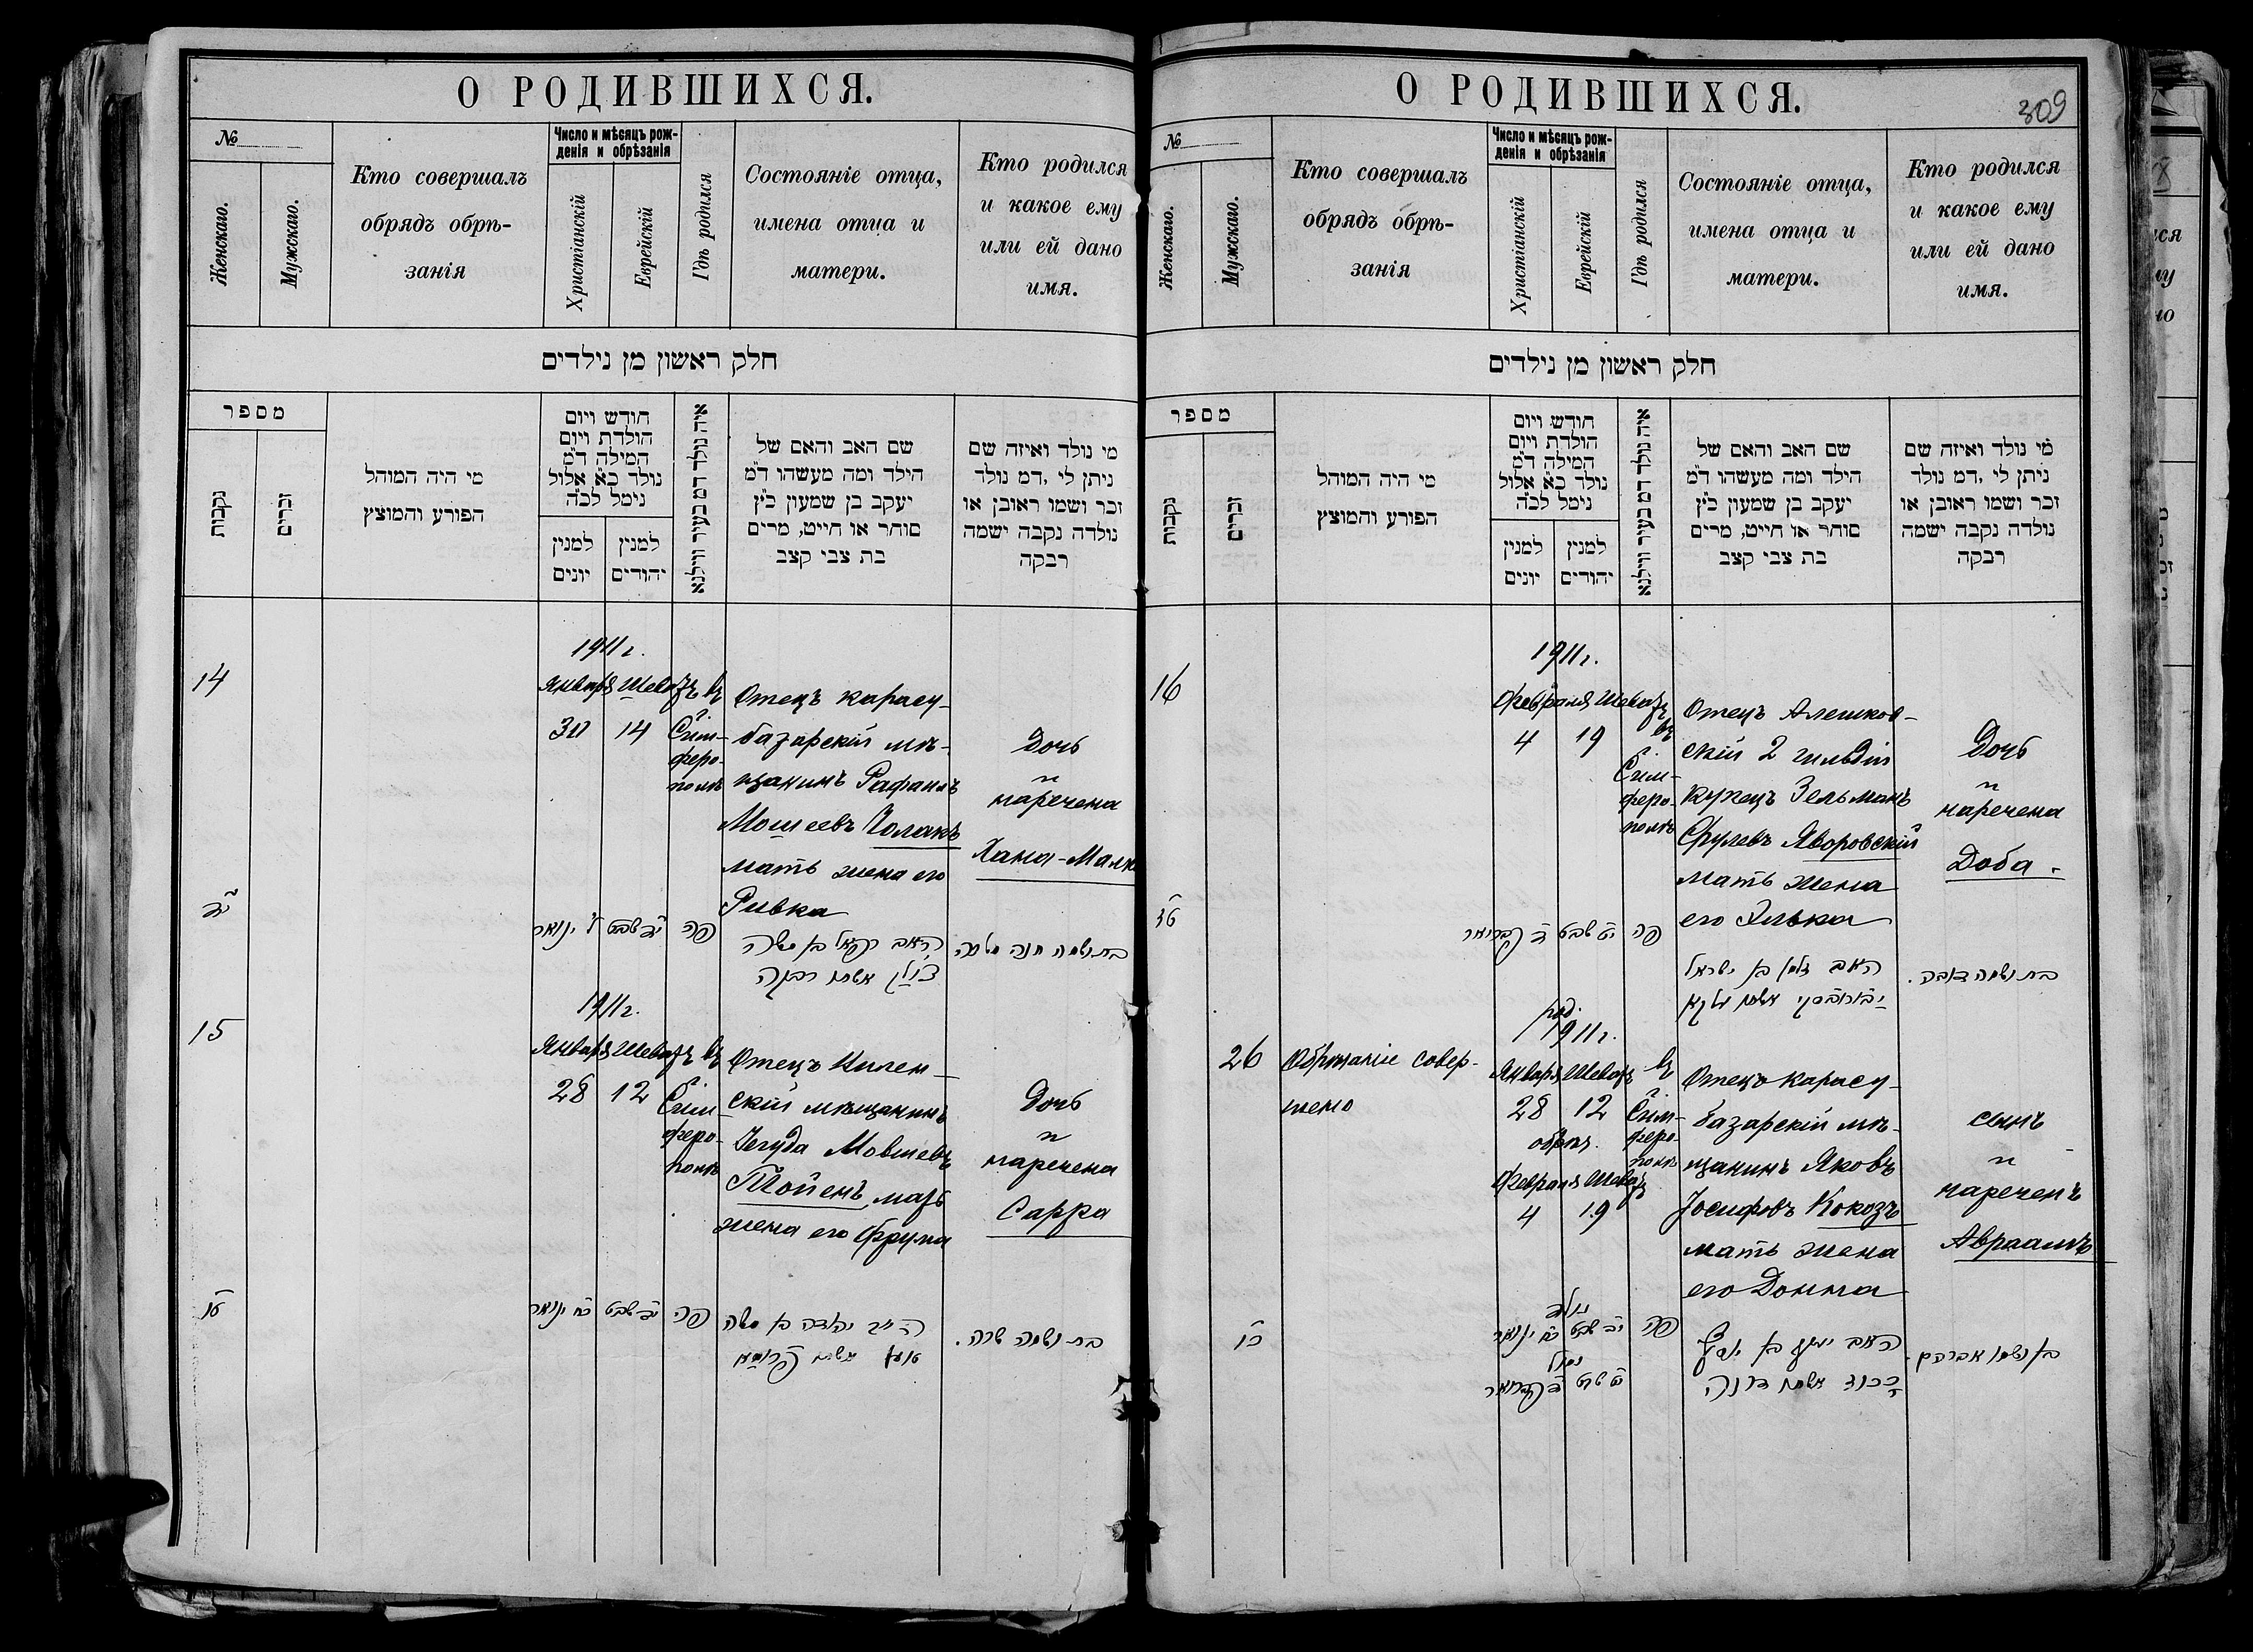 О РОДИВШИХСЯ.
№
Женскаго.
Мужскаго.
Кто совершалъ
обрядъ обрѣ-
занія
Число и мѣсяцъ рож-
денія и обрѣзанія
Христіанскій
Еврейскій
Гдѣ родился
Состояніе отца,
имена отца и
матери.
Кто родился
и какое ему
или ей дано
имя.
חלק ראשון מן נילדים
מספר
נקבות
זכרים
מי היה המוהל
הפורע והמוצץ
חודש ויום
הולדת ויום
המילה ד״מ
נולד כ״א אלול
נימל לכ״ה
למנין
יונים
למנין
יהודים
איה נולד דמ בעיר ווילנא
שם האב והאם של
הילד ומה מעשהו ד״מ
יעקב בן שמעון כ״ץ
סוחר או חייט, מרים
בת צבי קצב
מי נולד ואיזה שם
ניתן לי, דמ נולד
זכר ושמו ראובן או
נולדה נקבה ישמה
רבקה
14
1911 г.
Января Шеватъ въ
30 14 Сим-
феро-
полѣ
Отецъ карасу-
базарскій мѣ-
щанинъ Рафаилъ
Мошеевъ Чолакъ
мать жена его
Ривка
Дочь
и
наречена
Хана-Малк
יד
ל ינואר
יד שבט
פה
האב רפאל בן משה
צולק אשתו רבקה
בת ושמה חנה מלכה
15
1911 г.
Января Шеватъ въ
28 12 Сим-
феро-
полѣ
Отецъ Вилен-
скій мѣщанинъ
Іегуда Мовшевъ
Тойенъ мать
жена его Фрума
Дочь
и
наречена
Сарра
טו
כח ינואר
יב שבט
פה
האב יהודה בן משה
אשתו פרומא
בת ושמה שרה.
О РОДИВШИХСЯ.
309
№
Женскаго.
Мужскаго.
Кто совершалъ
обрядъ обрѣ-
занія
Число и мѣсяцъ рож-
денія и обрѣзанія
Христіанскій
Еврейскій
Гдѣ родился
Состояніе отца,
имена отца и
матери.
Кто родился
и какое ему
или ей дано
имя.
חלק ראשון מן נילדים
מספר
נקבות
זכרים
מי היה המוהל
הפורע והמוצץ
חודש ויום
הולדת ויום
המילה ד״מ
נולד כ״א אלול
נימל לכ״ה
למנין
יונים
למנין
יהודים
איה נולד דמ בעיר ווילנא
שם האב והאם של
הילד ומה מעשהו ד״מ
יעקב בן שמעון כ״ץ
סוחר או חייט, מרים
בת צבי קצב
מי נולד ואיזה שם
ניתן לי, דמ נולד
זכר ושמו ראובן או
נולדה נקבה ישמה
רבקה
16
1911 г.
Февраля Шеватъ
4 19 въ
Сим-
феро-
полѣ
Отецъ Алешков-
скій 2 гильдіи
купецъ Зельманъ
Срулевъ Яворовскій
мать жена
его Элька
Дочь
и
наречена
Доба.
טז
ד פברואר
יט שבט
פה
האב זלמן בן ישראל
יבורובסקי אשתו אלקא
בת ושמה דובה.
26
Обрѣзаніе совер-
шено
род.
1911 г.
Января Шеватъ въ
28 12 Сим-
феро-
полѣ
обрѣз.
Февраля Шеватъ
4 19
Отецъ карасу-
базарскій мѣ-
щанинъ Яковъ
Іосифовъ Кокозъ
мать жена
его Донна
сынъ
и
нареченъ
Авраамъ
כו
נולד
כח ינואר
יב שבט
פה
נמול
ד פברואר
יט שבט
האב יעקב בן יוסף
כוכוז אשתו דונה
בן ושמו אברהם.